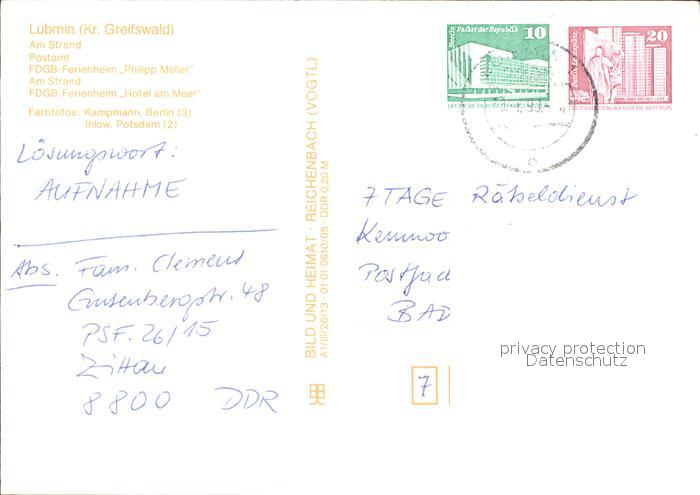 Lubmin (Kr. Greifswald)
Am Strand
Postamt
FDGB-Ferienheim „Philipp Müller"
Am Strand
FDGB-Ferienheim „Hotel am Meer"
Farbfotos: Kampmann, Berlin (3)
Ihlow, Potsdam (2)
Lösungswort:
AUFNAHME
Abs. Fam. Clement
Gutenbergstr. 48
PSF. 26/15
Zittau
8800 DDR
BILD UND HEIMAT · REICHENBACH (VOGTL)
A1/III/26/13 · 01 01 0610/05 · DDR 0,20 M
Berlin Palast der Republik 10
DEUTSCHE DEMOKRATISCHE REPUBLIK
20
DEUTSCHE DEMOKRATISCHE REPUBLIK
7 TAGE Rätseldienst
Kennwo
Postfac
BAD
7
privacy protection
Datenschutz